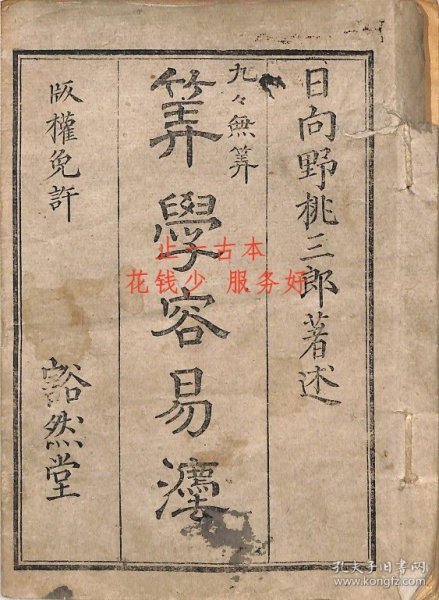 日向野桃三郎著述
九々無筭
筭學容易灋
版權免許
豁然堂
止一古本
花钱少 服务好
孔夫子旧书网
www.kongfz.com